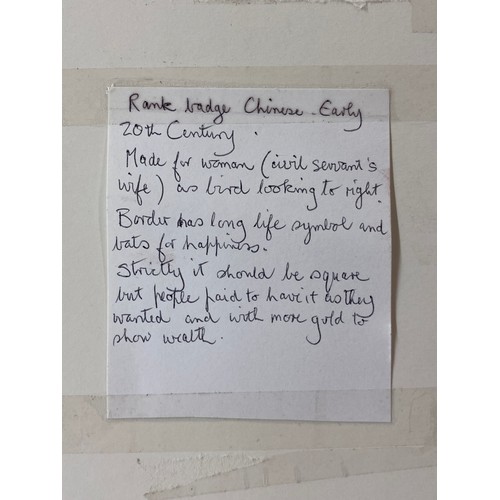 Rank badge Chinese. Early
20th Century.
Made for woman (civil servant's
wife) as bird looking to right.
Border has long life symbol and
bats for happiness.
Strictly it should be square
but people paid to have it as they
wanted and with more gold to
show wealth.